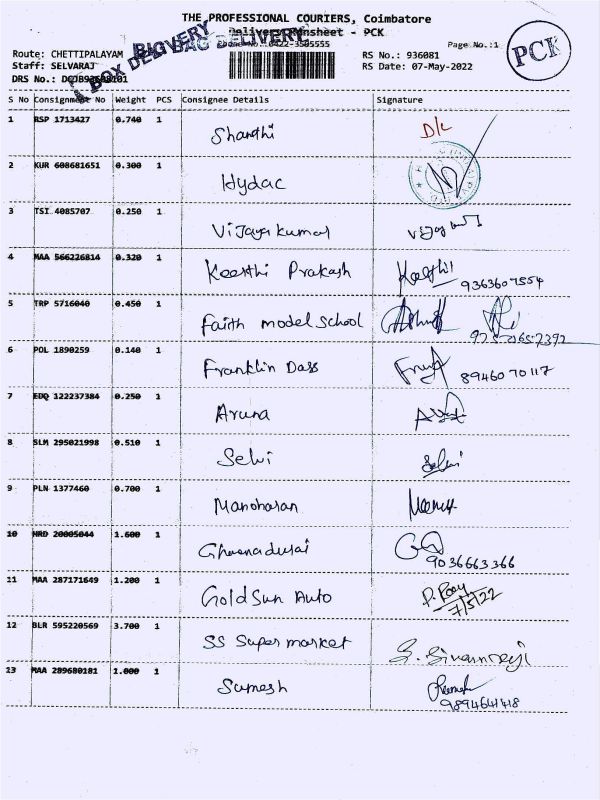 THE PROFESSIONAL COURIERS, Coimbatore
Delivery Runsheet - PCK
Phone No.:0422-3505555
Page No.:1
BIG BAG DELIVERY
BOX DELIVERY
PCK
Route: CHETTIPALAYAM
RS No.: 936081
Staff: SELVARAJ
RS Date: 07-May-2022
DRS No.:
S No Consignment No Weight PCS Consignee Details Signature
1 RSP 1713427 0.740 1 Shanthi D/L
2 KUR 608681651 0.300 1 Hydac
3 TSI 4085707 0.250 1 Vijayakumar
4 MAA 566226814 0.320 1 Keerthi Prakash 9363607554
5 TRP 5716040 0.450 1 Faith model School
6 POL 1890259 0.140 1 Franklin Dass 8946070117
7 EDQ 122237384 0.250 1 Aruna
8 SLM 295021998 0.510 1 Selvi Selvi
9 PLN 1377460 0.700 1 Manoharan
10 HRD 20005044 1.600 1 9036663366
11 MAA 287171649 1.200 1 Gold Sun Auto 7/5/22
12 BLR 595220569 3.700 1 SS Super market
13 MAA 289680181 1.000 1 Sumesh 9894641418